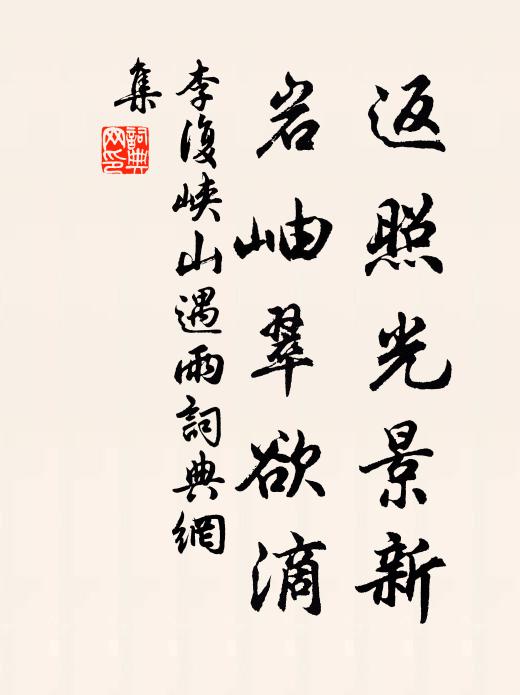 返照光景新
岩岫翠欲滴
李復峽山遇雨詞典網
集
詞典
网印